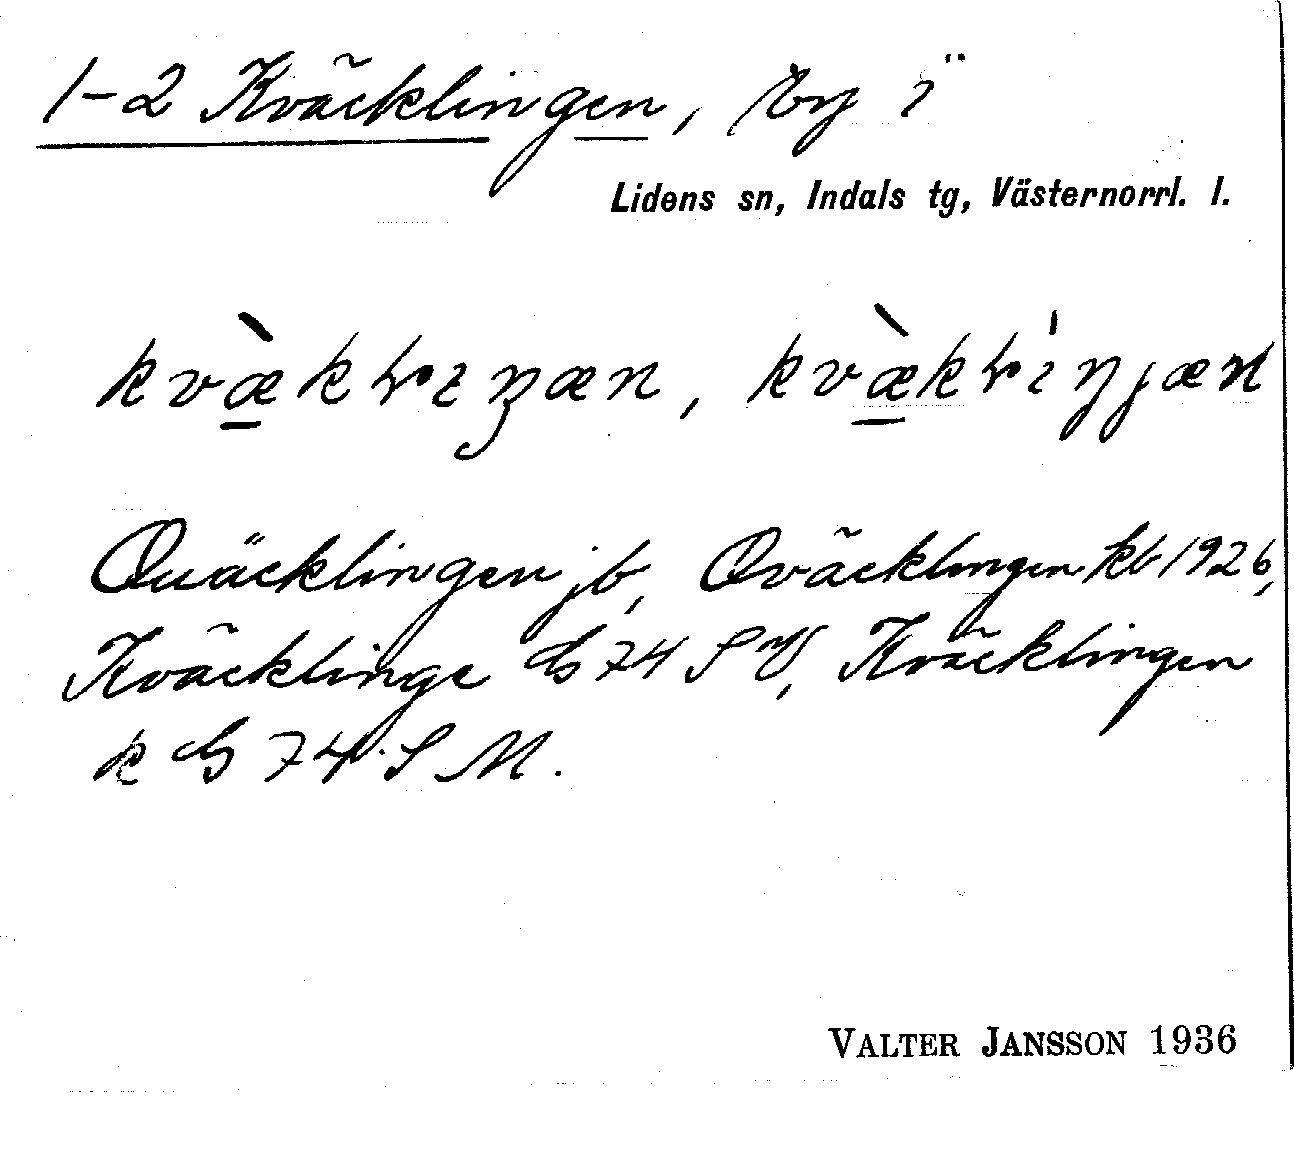 1-2 Kväcklingen, by i
Lidens sn, Indals tg, Västernorrl. l.
Quäcklingen jb, Qväcklingen kb 1926,
Kväcklinge G 74 S V, Kväcklingen
k G 74 S M.
VALTER JANSSON 1936